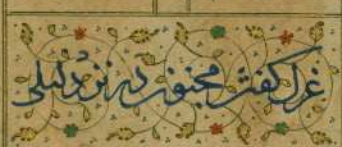 غزل گفتن مجنون در نزد لیلی